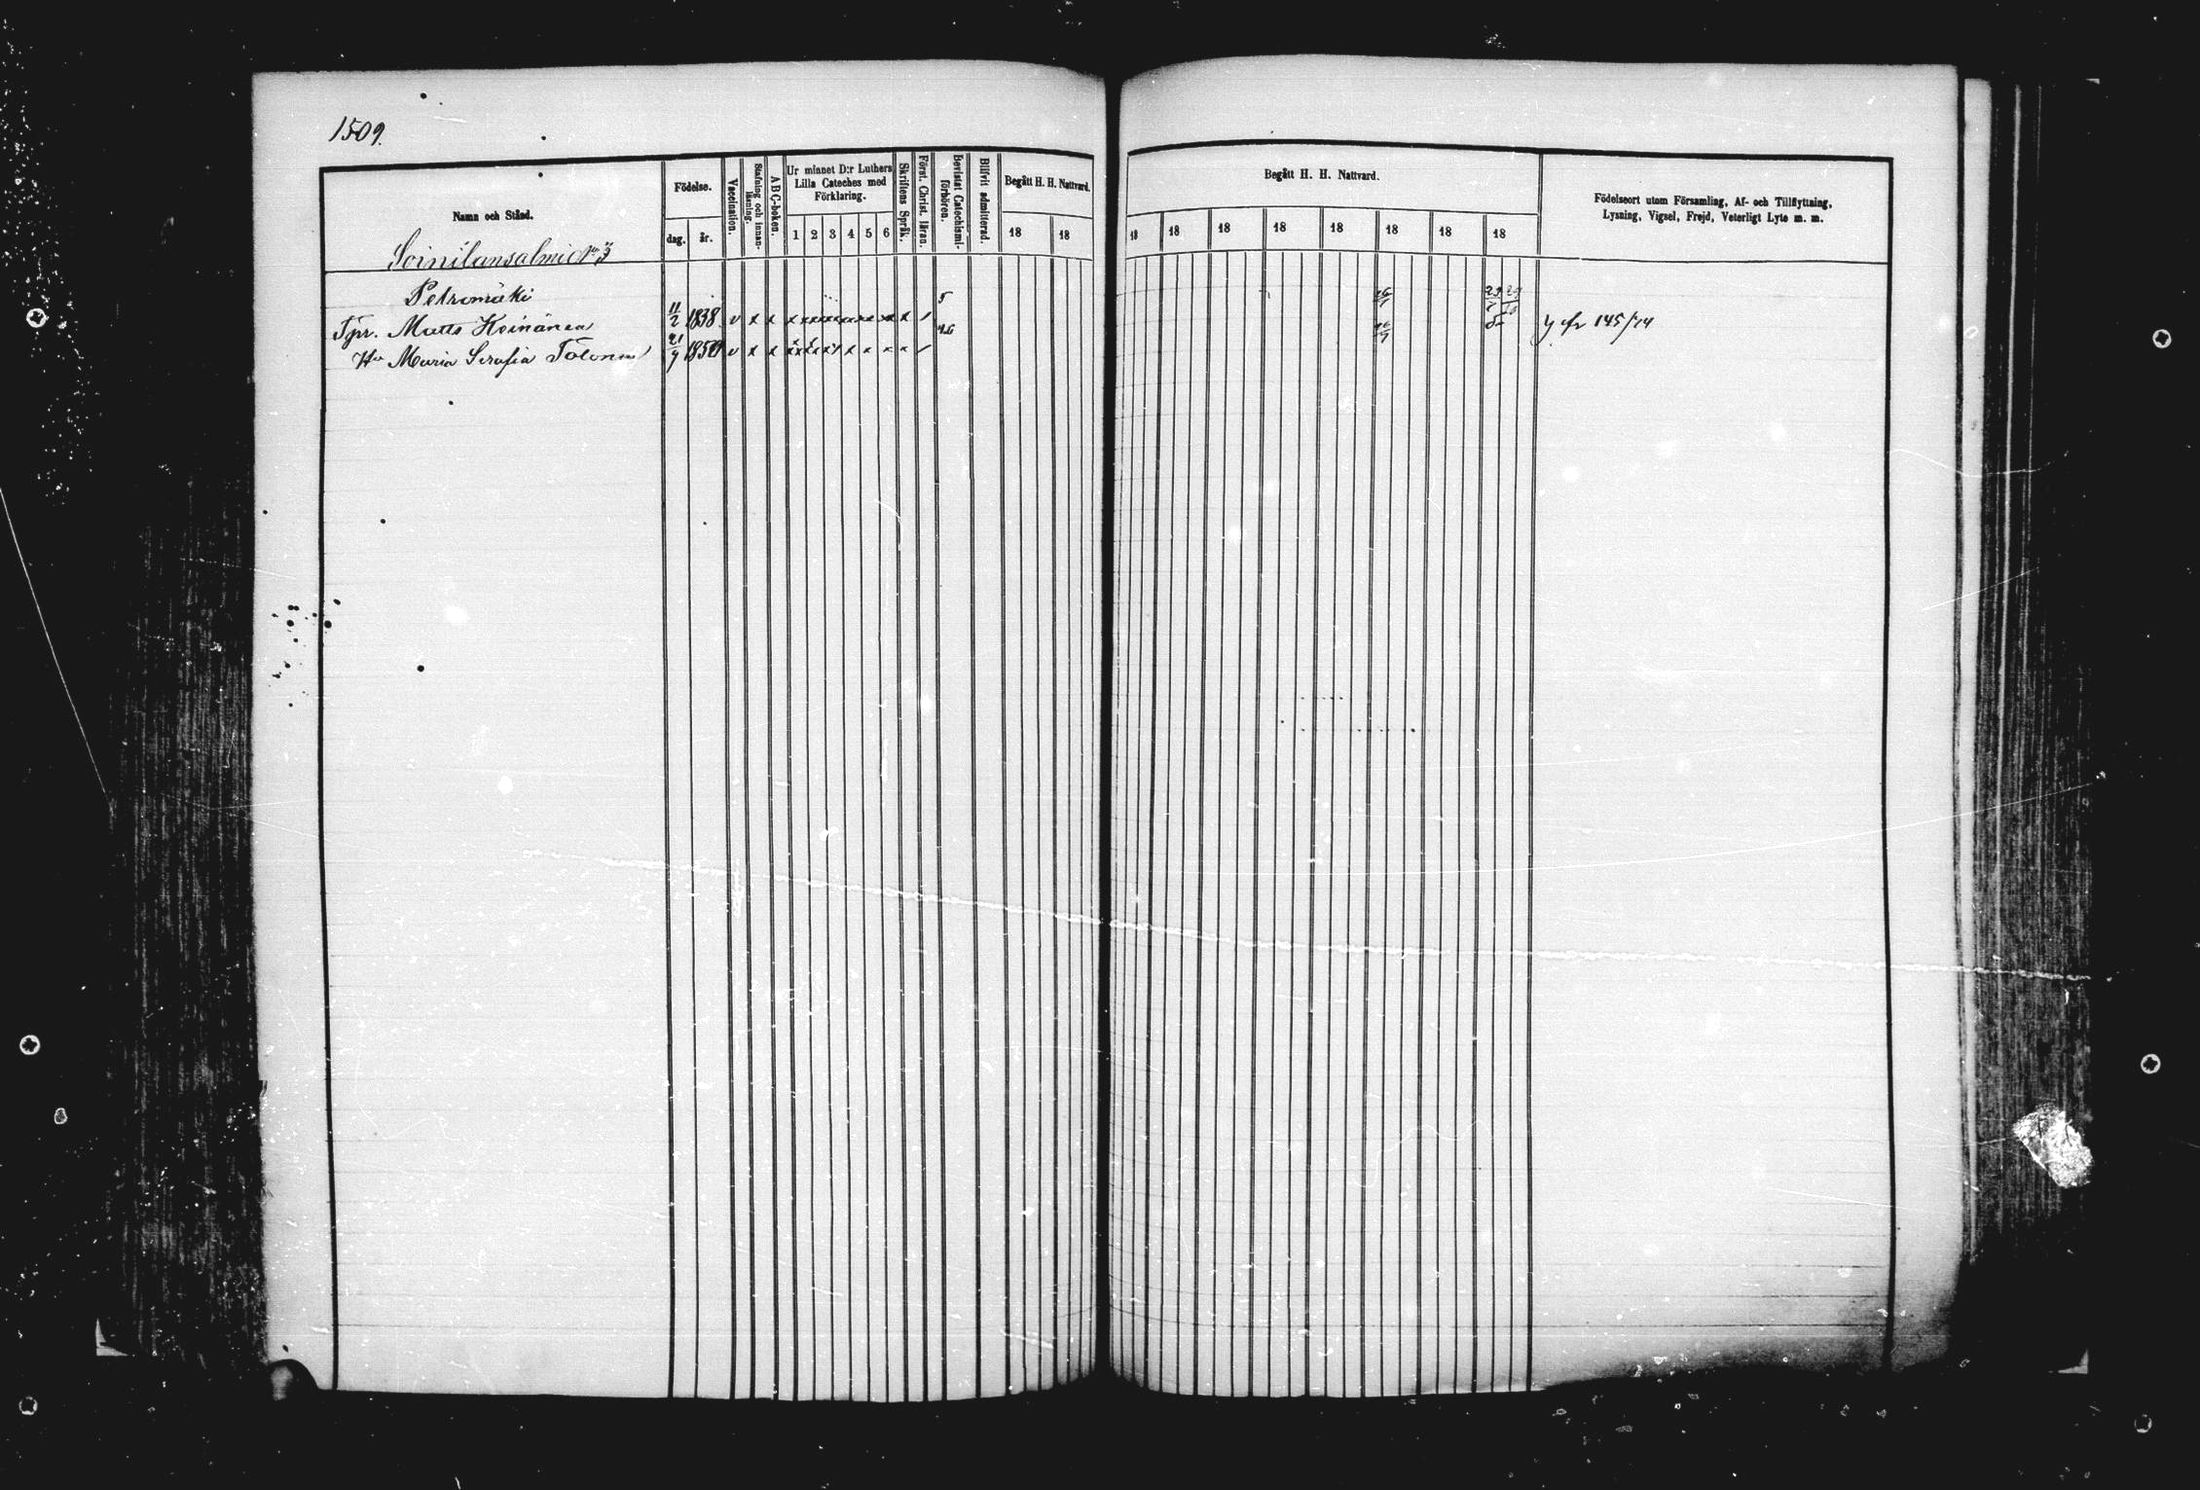 1509.
Namn och Stånd.
Födelse.
dag.
år.
Vaccination.
Stafning och innanläsning.
A B C-boken.
Ur minnet D:r Luthers
Lilla Cateches med
Förklaring.
1 2 3 4 5 6
Skriftens Språk.
Först. Christ. läran.
Bevistat Catechismiförhören.
Blifvit admitterad.
Begått H. H. Nattvard.
18 18
Begått H. H. Nattvard.
18 18 18 18 18 18 18 18
Födelseort utom Församling, Af- och Tillflyttning,
Lysning, Vigsel, Frejd, Veterligt Lyte m. m.
Soinilansalmi No 3
Petromäki
Tpr. Matts Koinánen 11/2 1838 v x x 145/74
Hu Maria Serafia Tolonen 21/9 1850 v x x